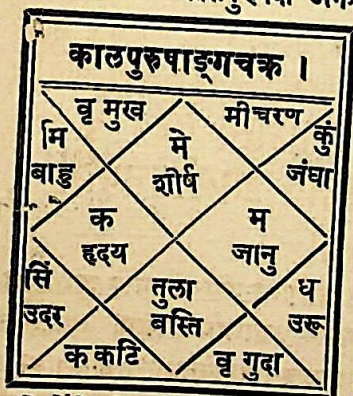 कालपुरुषाङ्गचक्र ।
वृ मुख
मीचरण
मि
बाहु
मे
शीर्ष
कुं
जंघा
क
हृदय
म
जानु
सिं
उदर
तुला
बस्ति
ध
उरू
क कटि
वृ गुदा